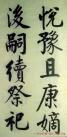 嫡後嗣續祭祀
悅豫且康